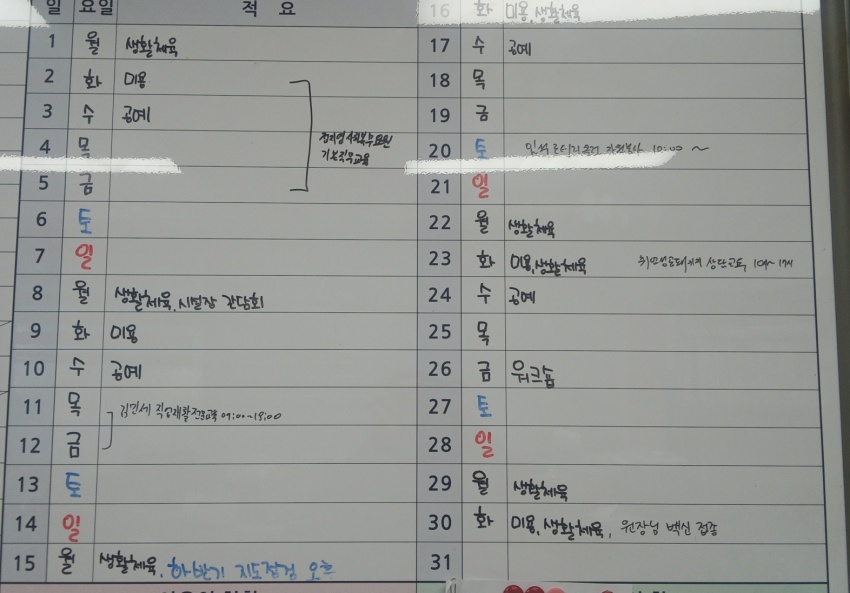 일 요일 적 요
1 월 생활체육
2 화 미용
3 수 공예
기본직무교육
4 목
5 금
6 토
7 일
8 월 생활체육, 시설장 간담회
9 화 미용
10 수 공예
11 목 직업재활 09:00~18:00
12 금
13 토
14 일
15 월 생활체육, 하반기 지도점검 오후
16 화 미용, 생활체육
17 수 공예
18 목
19 금
20 토 10:00 ~
21 일
22 월 생활체육
23 화 미용, 생활체육
24 수 공예
25 목
26 금 워크숍
27 토
28 일
29 월 생활체육
30 화 미용, 생활체육, 원장님 백신 접종
31